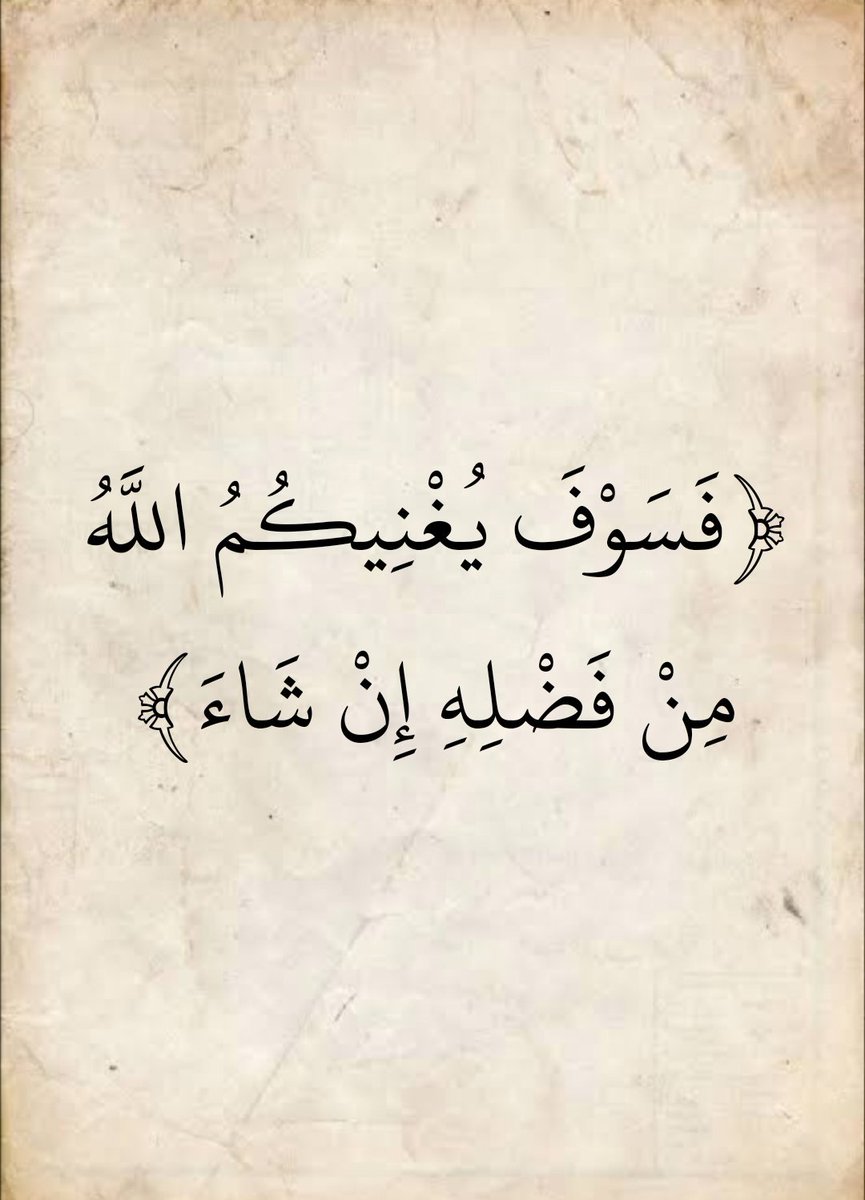 ﴿فَسَوْفَ يُغْنِيكُمُ اللَّهُ
مِنْ فَضْلِهِ إِنْ شَاءَ﴾